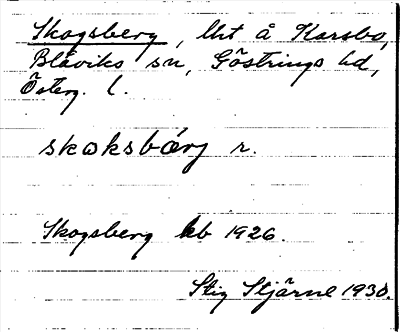 Skogsberg, lht å Karsbo,
Blåviks sn, Göstrings hd,
Österg. l.
skoksbærj r.
Skogsberg kb 1926.
Stig Stjärne 1930.